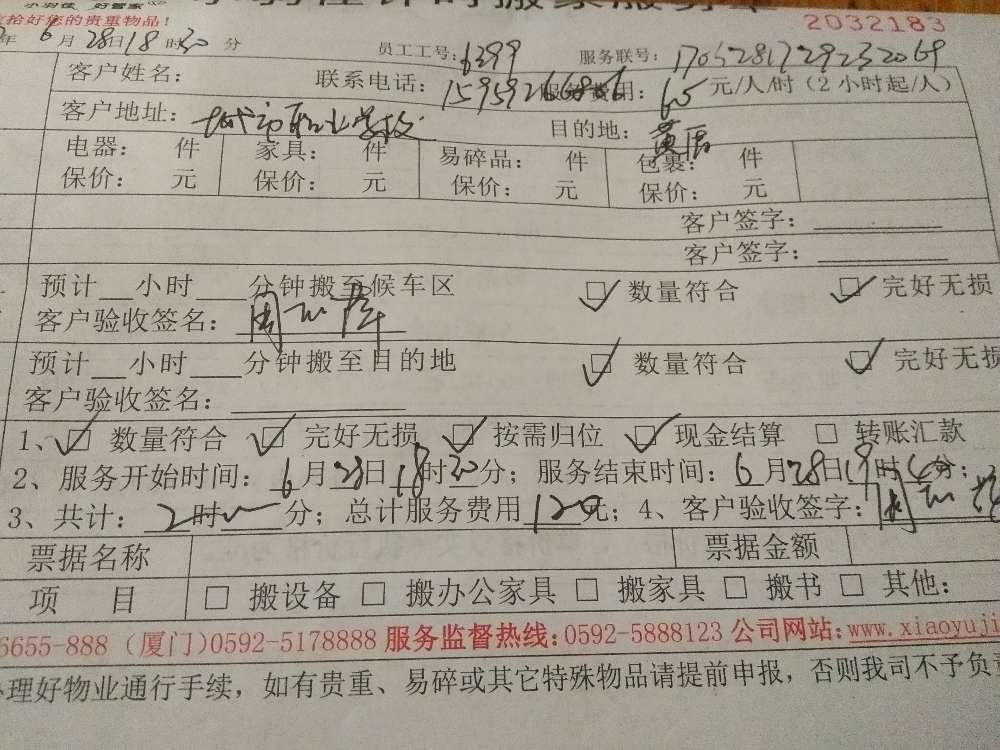 搬家服务
拾好您的贵重物品！ 2032183
年6月28日18时30分 员工工号：6299 服务联号：
客户姓名： 联系电话： 服务费用：60元/人/时（2小时起/人）
客户地址： 市职业学校 目的地：黄厝
电器： 件 家具： 件 易碎品： 件 包裹： 件
保价： 元 保价： 元 保价： 元 保价： 元
客户签字：
客户签字：
预计__小时___分钟搬至候车区 ☑ 数量符合 ☑ 完好无损
客户验收签名：
预计__小时___分钟搬至目的地 ☑ 数量符合 ☑ 完好无损
客户验收签名：
1、☑ 数量符合 ☑ 完好无损 ☑ 按需归位 ☑ 现金结算 □ 转账汇款
2、服务开始时间：6月28日18时30分；服务结束时间：6月28日19时 分；
3、共计：2时 分；总计服务费用120元；4、客户验收签字：
票据名称 票据金额
项 目 □ 搬设备 □ 搬办公家具 □ 搬家具 □ 搬书 □ 其他：
6655-888 (厦门)0592-5178888 服务监督热线：0592-5888123 公司网站：www.xiaoyuji
办理好物业通行手续，如有贵重、易碎或其它特殊物品请提前申报，否则我司不予负责